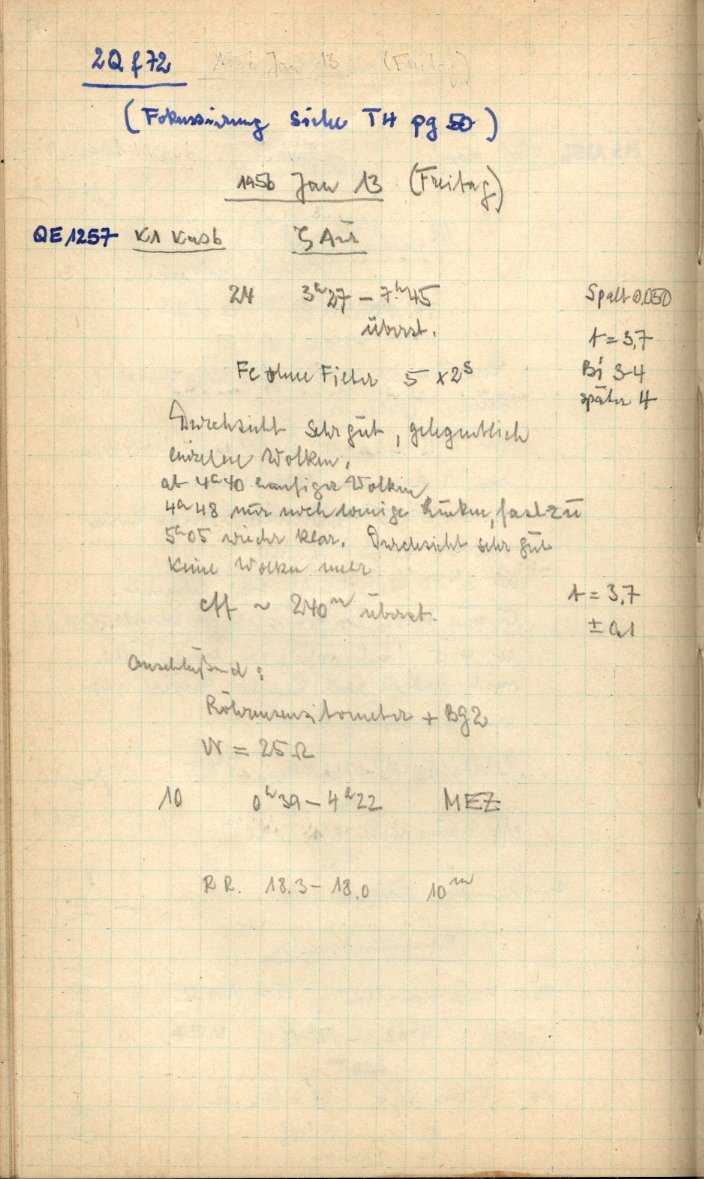 2Q f72
(Fokussierung siehe TH pg 50)
1956 Jan 13 (Freitag)
QE 1257 K1 Kasb ζ Aur
24 3ʰ27 – 7ʰ45 Spalt 0,050
überst. t = 3,7
Fe ohne Filter 5 x 2ˢ Bi 3-4
später 4
Durchsicht sehr gut, gelegentlich
einzelne Wolken,
ab 4ʰ40 häufiger Wolken
4ʰ48 nur noch wenige Lücken, fast zu
5ʰ05 wieder klar. Durchsicht sehr gut
keine Wolken mehr
eff ~ 240ᵐ überst. t = 3,7
± 0,1
Anschließend:
Röhrensensitometer + BG2
W = 25 Ω
10 0ʰ39 – 4ʰ22 MEZ
RR. 18.3 – 18.0 10ᵐ